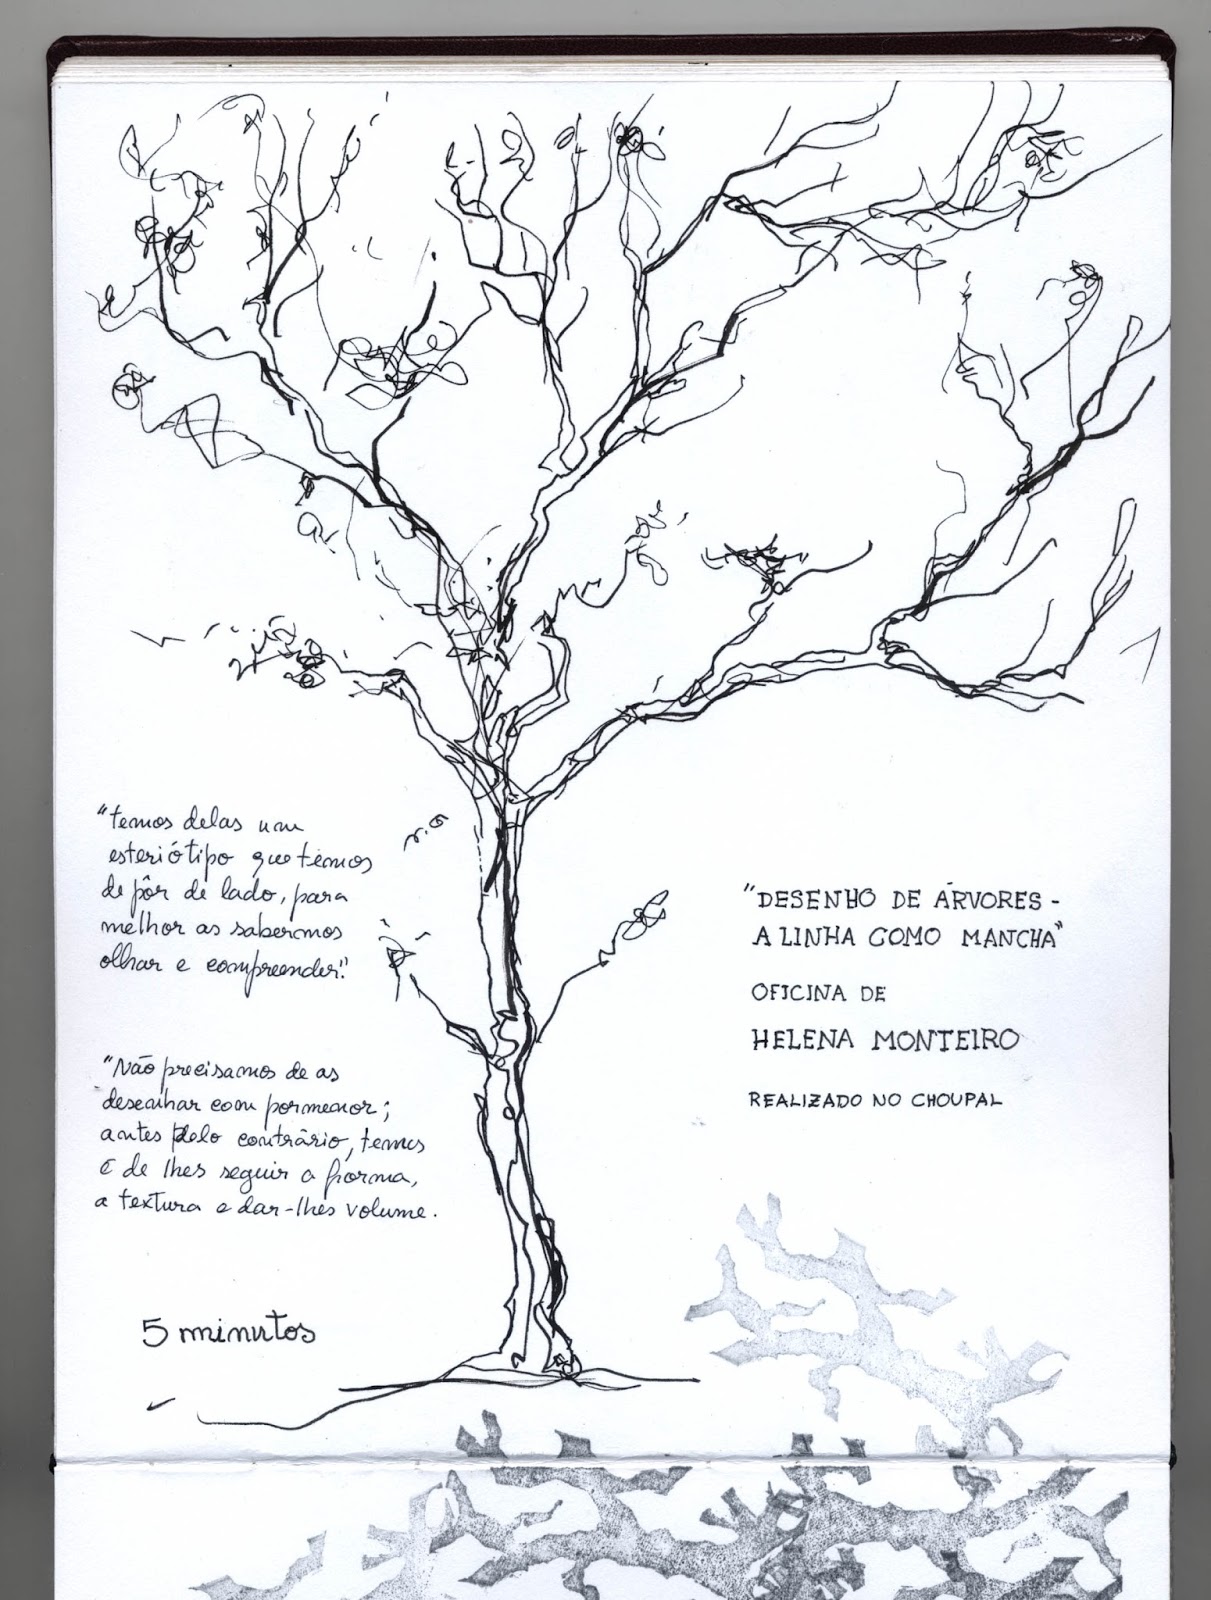 "temos delas um
esteriótipo que temos
de pôr de lado, para
melhor as sabermos
olhar e compreender!"
"Não precisamos de as
desenhar com pormenor;
antes pelo contrário, temos
é de lhes seguir a forma,
a textura e dar-lhes volume.
5 minutos
"DESENHO DE ÁRVORES -
A LINHA COMO MANCHA"
OFICINA DE
HELENA MONTEIRO
REALIZADO NO CHOUPAL